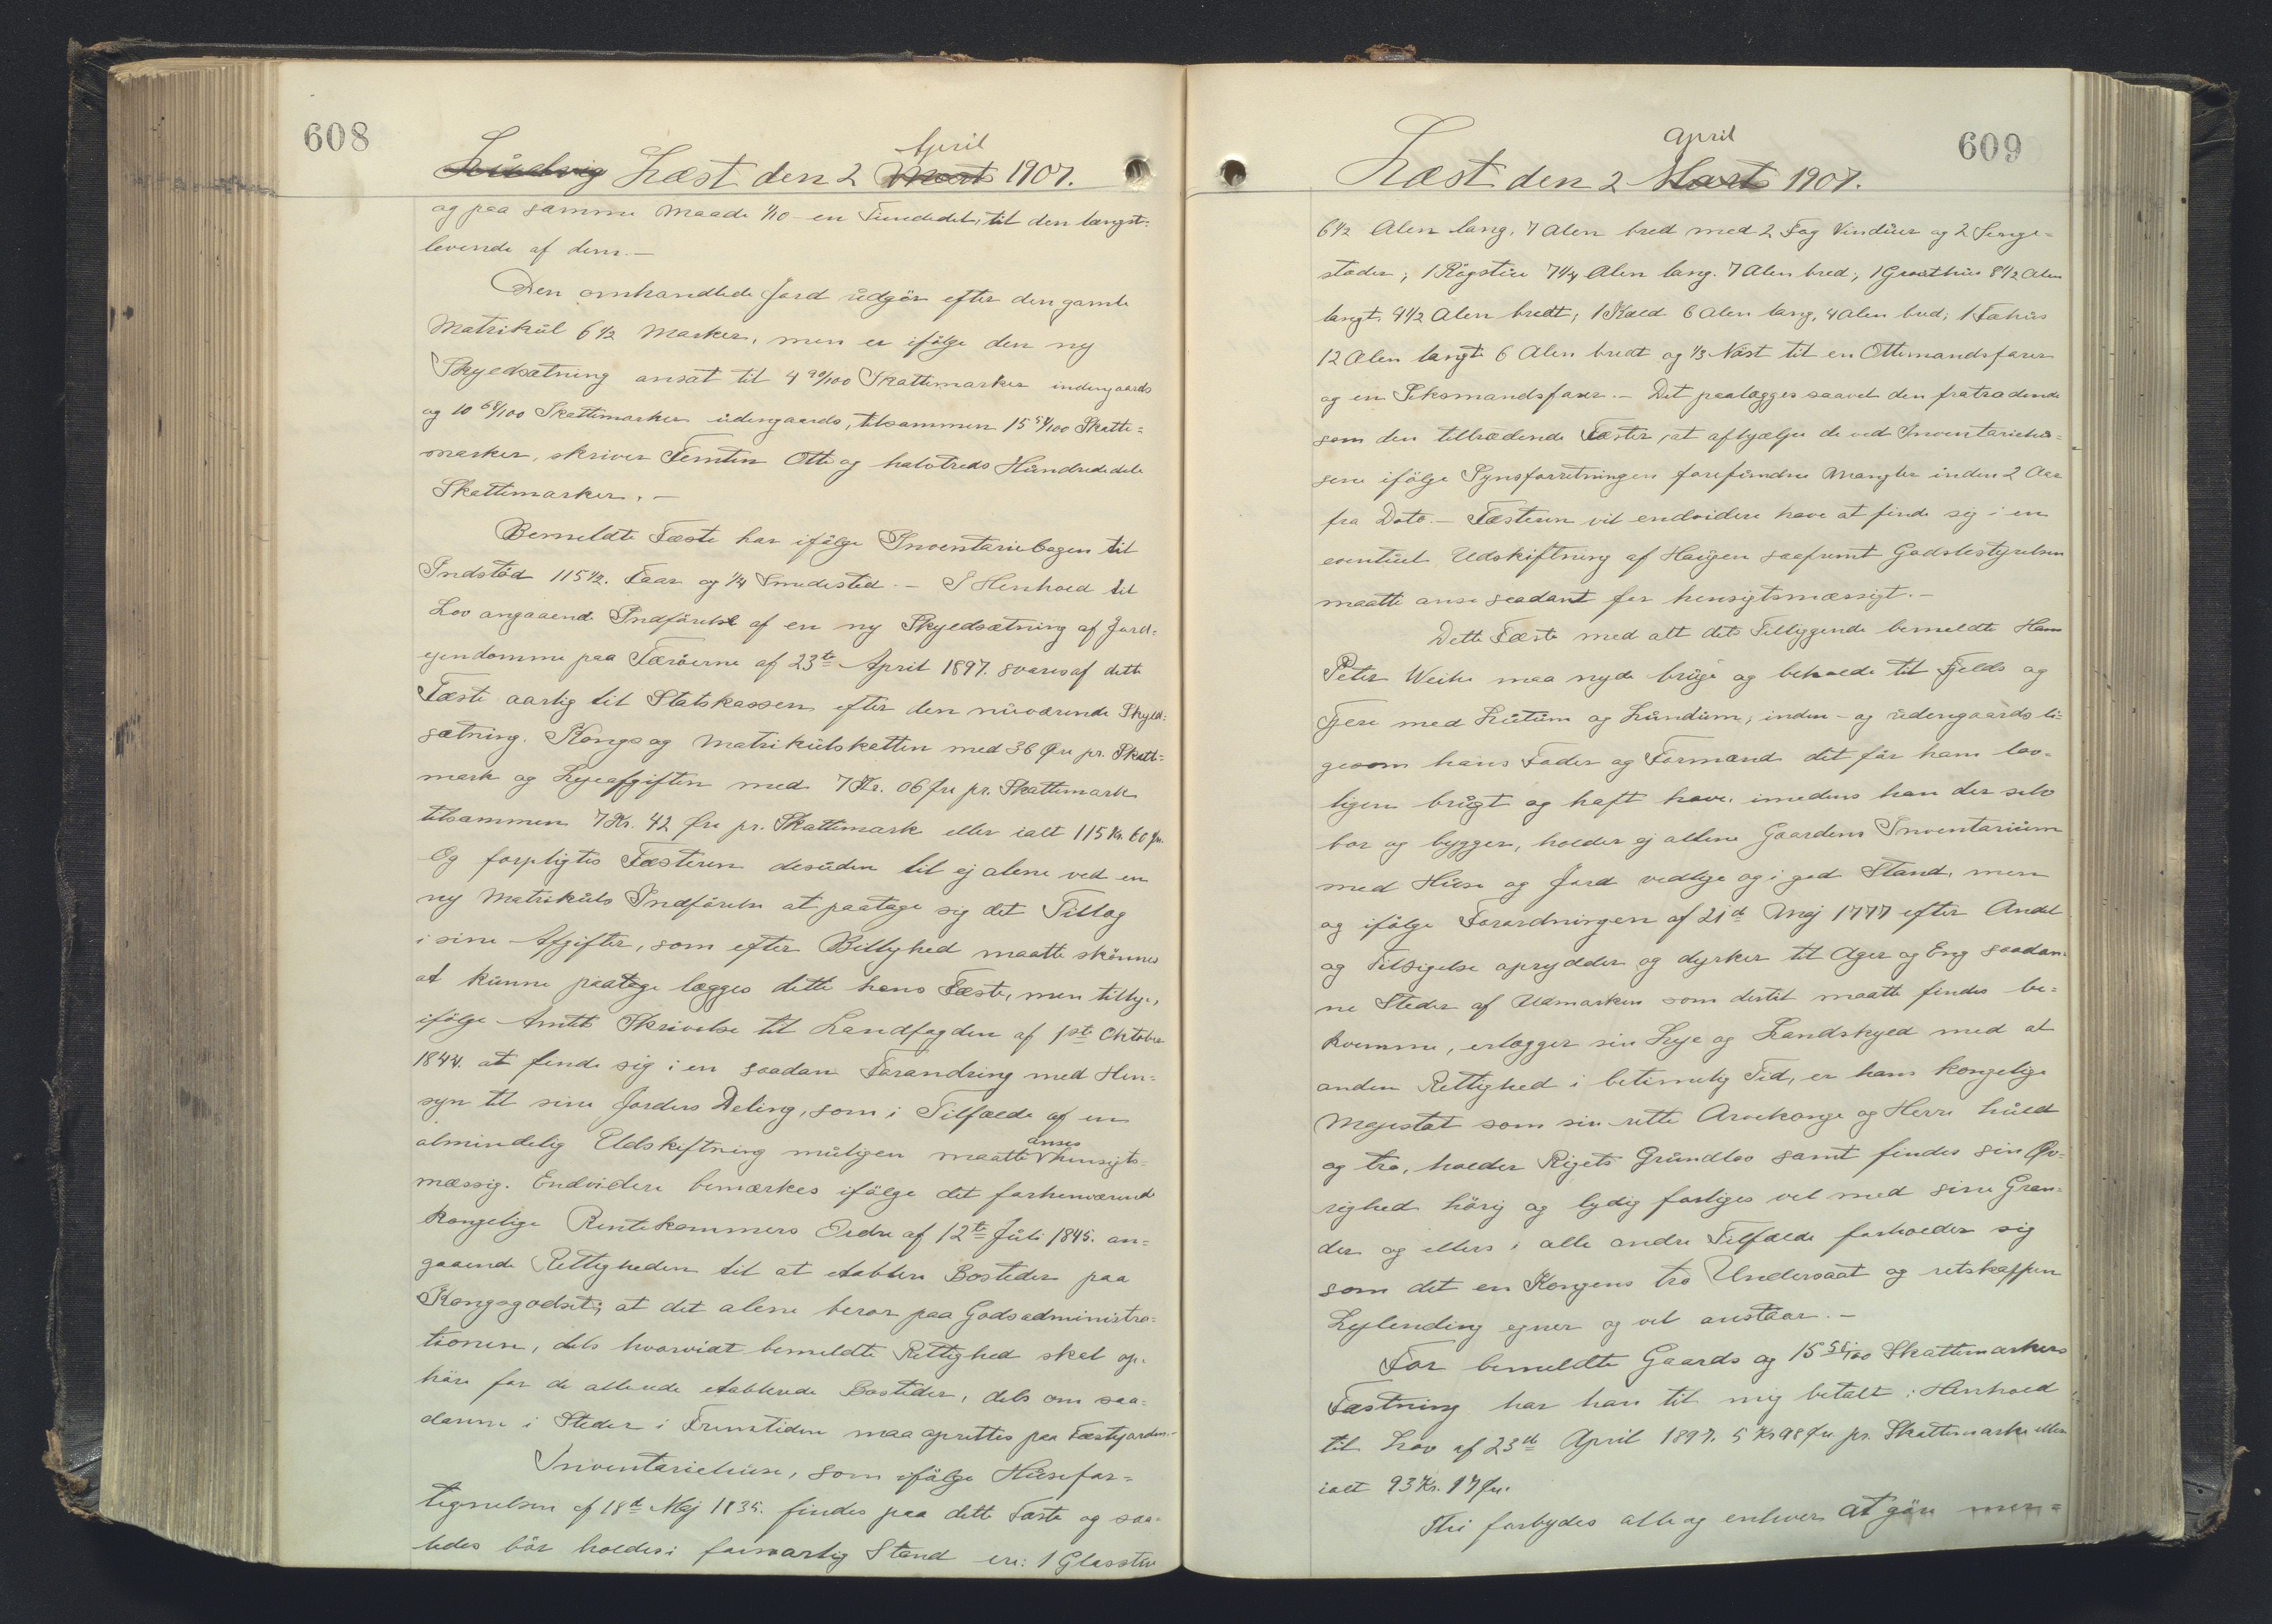 608
April
Ludvig Læst den 2 Marts 1907.
og paa samme Maade 1/10 en Tiendedel, til den længst-
levende af dem.-
Den omhandlede Jord udgör efter den gamle
Matrikül 6 1/2 Marker, men er ifölge den ny
Skyldsætning ansat til 4 90/100 Skattemarker indengaards
og 10 68/100 Skattemarker üdengaards, tilsammen 15 58/100 Skatte=
marker, skriver Femten Otte og halvtreds Hündrededele
Skattemarker.-
Bemeldte Fæste har ifölge Inventariebogen til
Indstöd 115 1/2. Faar og 1/4 Smedested.- I Henhold til
Lov angaaende Indförelse af en ny Skyldsætning af Jord-
ejendomme paa Færöerne af 23de April 1897. svares af dette
Fæste aarlig til Statskassen efter den nüværende Skyld-
sætning. Konge og Matrikülskatten med 36 Øre pr. Skatte=
mark og Lejeafgiften med 7 Kr. 06 Øre pr. Skattemark
tilsammen 7 Kr. 42 Øre pr. Skattemark eller ialt 115 Kr. 60 Øre.
Og forpligtes Fæsteren desüden til ej alene ved en
ny Matriküls Indförelse at paatage sig det Tillæg
i sine Afgifter, som efter Billighed maatte skönnes
at künne paatage lægges dette hans Fæste, men tillige,
ifölge Amtets Skrivelse til Landfogden af 1ste Oktober
1844. at finde sig i en saadan Forandring med Hen=
syn til sine Jorders Deling, som i Tilfælde af en
almindelig Udskiftning müligen maatte anses hensigts-
mæssig. Endvidere bemærkes ifölge det forhenværende
kongelige Rentekammers Ordre af 12te Jüli 1845. an=
gaaende Rettigheden til at etablere Bosteder paa
Kongsgodset; at det alene beror paa Godsadministra=
tionen, dels hvorvidt bemeldte Rettighed skal op-
höre for de allerede etablerede Bosteder, dels om saa=
danne i Steder i Fremtiden maa oprettes paa Fæstejorden.-
Inventariehüse, som ifölge Hüsefor=
tegnelsen af 18de Maj 1835. findes paa dette Fæste og saa-
ledes bör holdes i forsvarlig Stand ere: 1 Glasstüe
609
April
Læst den 2 Marts 1907.
6 1/2 Alen lang, 7 Alen bred med 2 Fag Vindüer og 2 Senge=
steder; 1 Rögstüe 7 1/4 Alen lang. 7 Alen bred; 1 Grüthüs 8 1/2 Alen
langt. 9 1/2 Alen bredt; 1 Kold 6 Alen lang, 4 Alen bred; 1 Fæhüs
12 Alen langt 6 Alen bredt og 1/3 Nöst til en Ottemandsfarer
og en Seksmandsfarer.- Det paalægges saavel den fratrædende
som den tiltrædende Fæster, at afhjælpe de ved Inventariehü=
sene ifölge Synsforretningen forefündne Mangler inden 2 Aar
fra Dato.- Fæsteren vil endvidere have at finde sig i en
eventüel Udskiftning af Haugen saafremt Godsbestyrelsen
maatte anse saadant for hensigtsmæssigt.-
Dette Fæste med alt dets Tilliggende bemeldte Hans
Peter Weihe maa nyde brüge og beholde til Fjelds og
Fjære med Lütüm og Lündüm, inden- og üdengaards li=
gesom hans Fader og Formænd det för ham lov-
ligen brügt og haft have. imedens han der selv
bor og bygger, holder ej allene Gaardens Inventariüm
med Hüse og Jord vedlige og i god Stand, men
og ifölge Forordningen af 21de Maj 1777 efter Andel
og Tilsigelse oprydder og dyrker til Ager og Eng saadan-
ne Steder af Udmarken som dertil maatte findes be=
kvemme, erlægger sin Leje og Landskyld med al
anden Rettighed i betimelig Tid, er hans kongelige
Majestæt som sin rette Arvekonge og Herre hüld
og tro, holder Rigets Gründlov samt findes sin Øv-
righed hörig og lydig forliges vel med sine Gran=
der og ellers i alle andre Tilfælde forholder sig
som det en Kongens tro Undersaat og retskaffen
Lejlending egner og vel anstaar.-
For bemeldte Gaards og 15 58/100 Skattemarkers
Fæstning har han til mig betalt i Henhold
til Lov af 23de April 1897. 5 Kr 98 Øre pr. Skattemark eller
ialt 93 Kr. 17 Øre.
Thi forbydes alle og enhver at göre men=